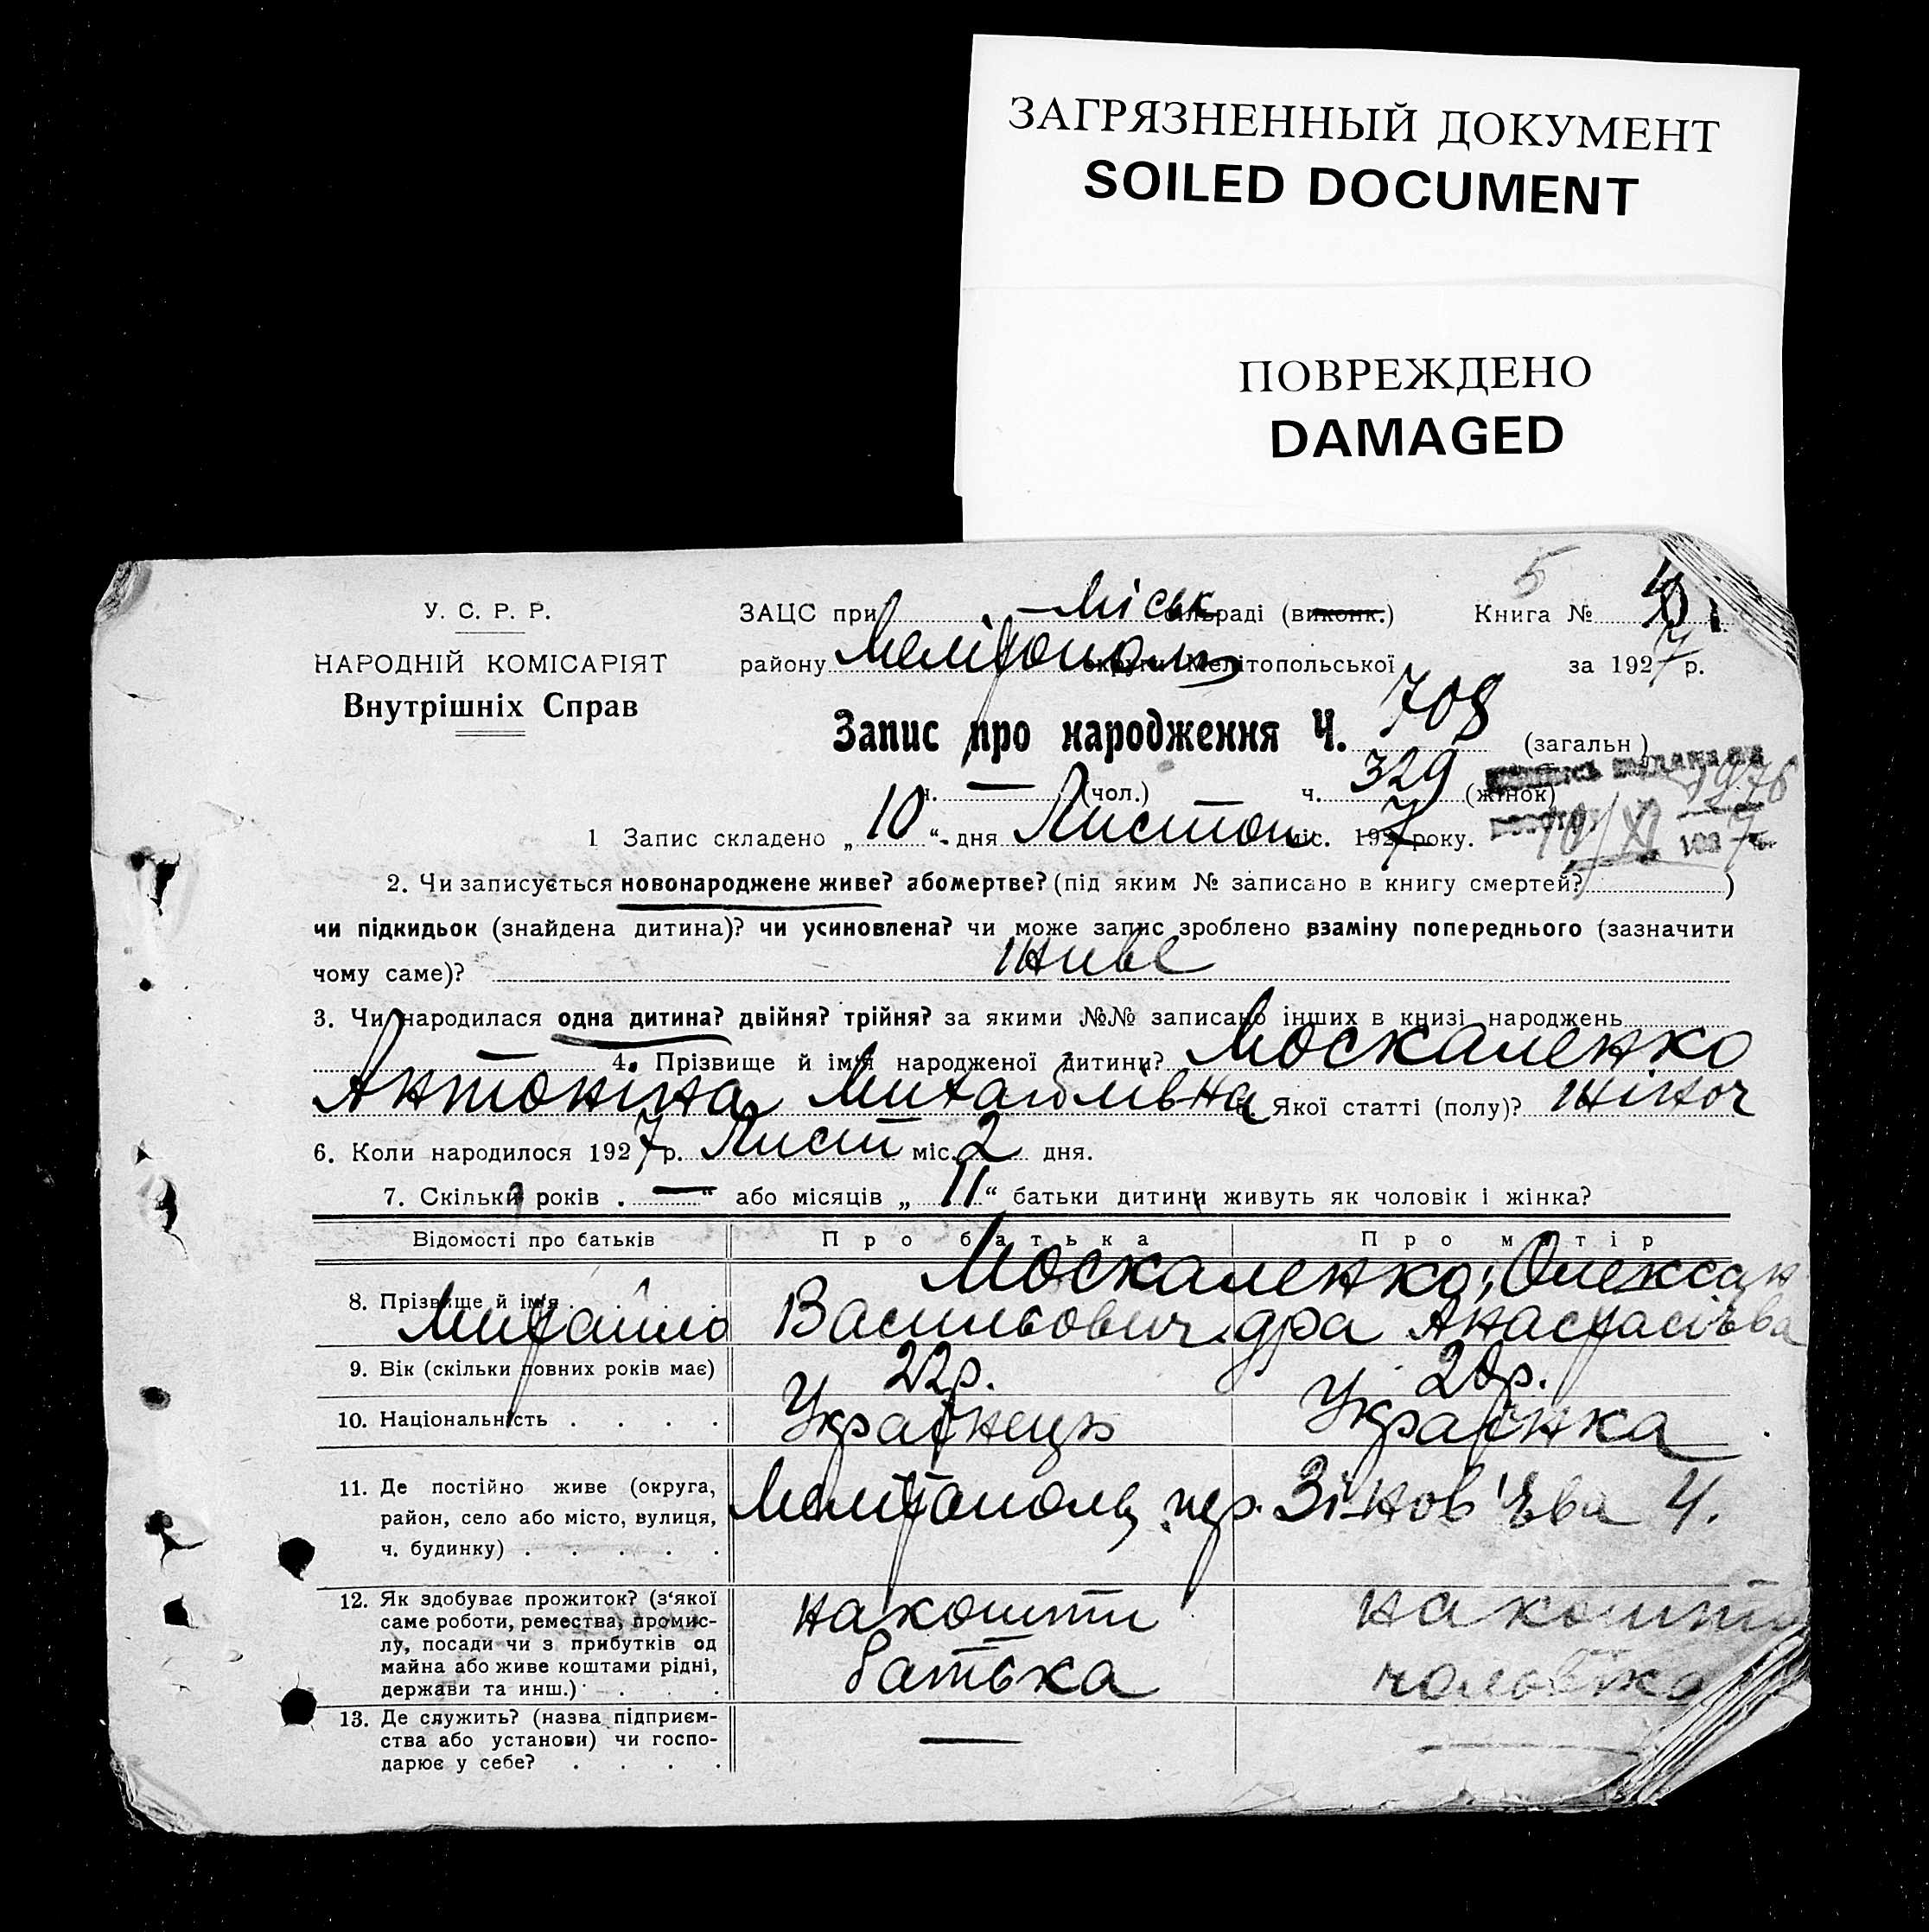 ЗАГРЯЗНЕННЫЙ ДОКУМЕНТ
SOILED DOCUMENT
ПОВРЕЖДЕНО
DAMAGED
5
У. С. Р. Р.
НАРОДНІЙ КОМІСАРІЯТ
Внутрішніх Справ
ЗАЦС при Міськ раді (виконк.) Книга №
району Мелітополь округи Мелітопольської за 1927 р.
Запис про народження Ч. 708 (загальн)
ч. — (чол.) ч. 329 (жінок)
1 Запис складено „ 10 “ дня Листоп міс. 1927 року.
2. Чи записується новонароджене живе? або мертве? (під яким № записано в книгу смертей? )
чи підкидьок (знайдена дитина)? чи усиновлена? чи може запис зроблено взаміну попереднього (зазначити
чому саме)? живе
3. Чи народилася одна дитина? двійня? трійня? за якими №№ записано інших в книзі народжень
— 4. Прізвище й ім'я народженої дитини? Москаленко
Антоніна Михайлівна Якої статті (полу)? жіноч
6. Коли народилося 1927 р. Лист міс. 2 дня.
7. Скільки років „ — “ або місяців „ 11 “ батьки дитини живуть як чоловік і жінка?
Відомості про батьків Про батька Про матір
8. Прізвище й ім'я Москаленко Олексан
Михайло Васильович дра Анастасіївва
9. Вік (скільки повних років має) 22р. 20р.
10. Національність . . . . Українець Українка
11. Де постійно живе (округа,
район, село або місто, вулиця,
ч. будинку) . . . . . Мелітополь, пер. Зінов'єва 4.
12. Як здобуває прожиток? (з'якої
саме роботи, ремества, промис-
лу, посади чи з прибутків од
майна або живе коштами рідні,
держави та инш.) . . . на кошти батька на кошти чоловіка
13. Де служить? (назва підприєм-
ства або установи) чи госпо-
дарює у себе? . . . . — —